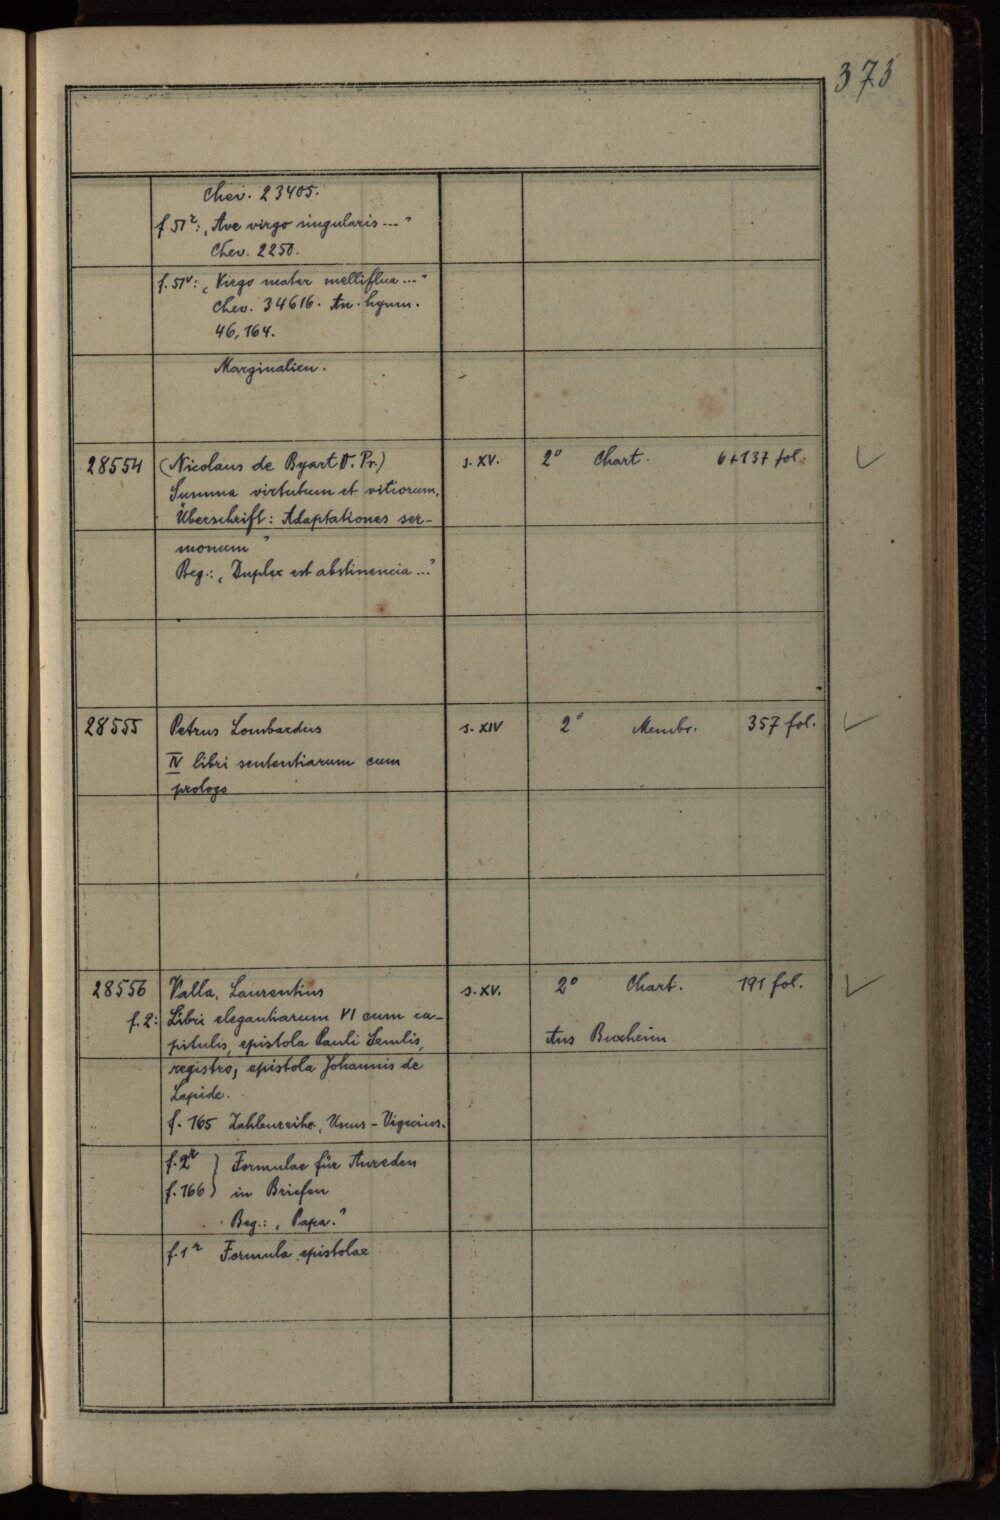 373
Chev. 23405.
f 51r: „Ave virgo singularis ..."
Chev. 2250.
f. 51v: „Virgo mater melliflua ..."
Chev. 34616. An. hymn.
46, 164.
Marginalien.
28554 (Nicolaus de Byart O. Pr.) s. XV. 2° Chart. 6+137 fol.
Summa virtutum et vitiorum.
Überschrift: Adaptationes ser-
monum"
Beg.: „Duplex est abstinencia ..."
28555 Petrus Lombardus s. XIV 2° Membr. 357 fol.
IV libri sententiarum cum
prologo
28556 Valla, Laurentius s. XV. 2° Chart. 191 fol.
f. 2: Libri elegantiarum VI cum ca-
pitulis, epistola Pauli Senilis,
Aus Buxheim
registro, epistola Johannis de
Lapide.
f. 165 Zahlenreihe „Unus - Vigecius.
f. 2r } Formulae für Anreden
f. 166 } in Briefen
Beg.: „Papa."
f. 1r Formula epistolae